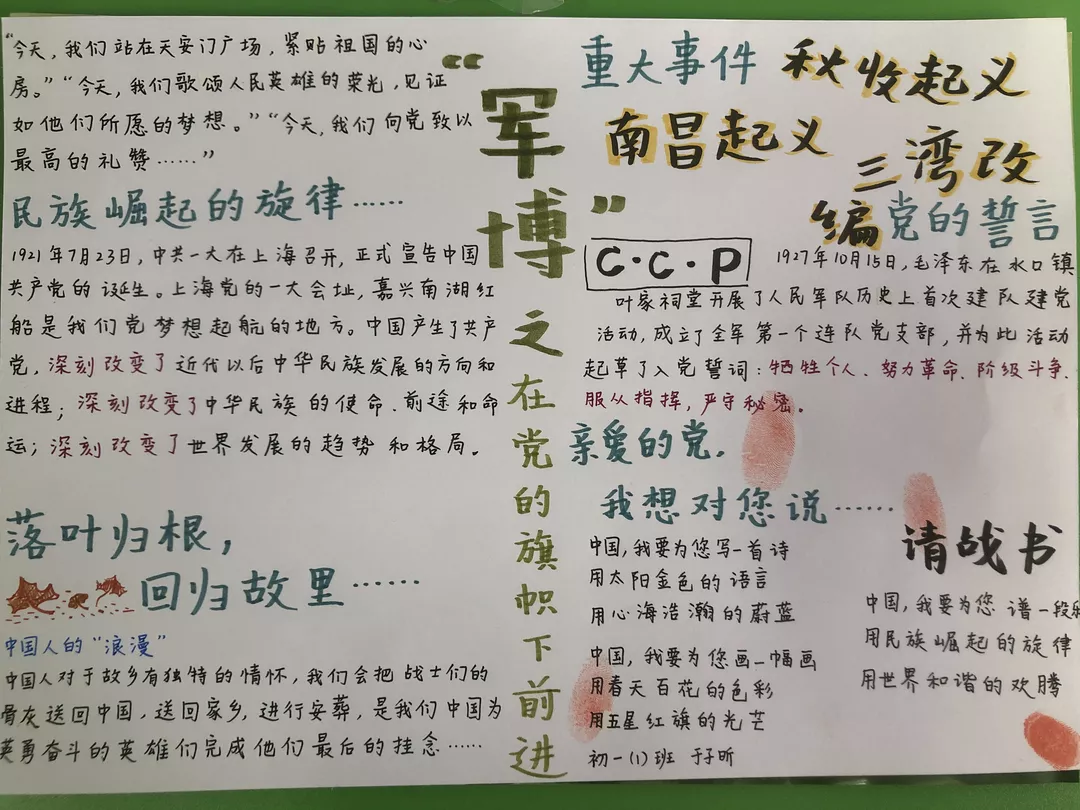 “今天，我们站在天安门广场，紧贴祖国的心
房。”“今天，我们歌颂人民英雄的荣光，见证
如他们所愿的梦想。”“今天，我们向党致以
最高的礼赞……”
民族崛起的旋律……
1921年7月23日，中共一大在上海召开，正式宣告中国
共产党的诞生。上海党的一大会址，嘉兴南湖红
船是我们党梦想起航的地方。中国产生了共产
党，深刻改变了近代以后中华民族发展的方向和
进程；深刻改变了中华民族的使命、前途和命
运；深刻改变了世界发展的趋势和格局。
落叶归根，
回归故里……
中国人的“浪漫”
中国人对于故乡有独特的情怀，我们会把战士们的
骨灰送回中国，送回家乡，进行安葬，是我们中国为
英勇奋斗的英雄们完成他们最后的挂念……
“军博”之在党的旗帜下前进
重大事件 秋收起义
南昌起义
三湾改
编 党的誓言
C·C·P
1927年10月15日，毛泽东在水口镇
叶家祠堂开展了人民军队历史上首次建队建党
活动，成立了全军第一个连队党支部，并为此活动
起草了入党誓词：牺牲个人、努力革命、阶级斗争、
服从指挥，严守秘密。
亲爱的党，
我想对您说……
中国，我要为您写一首诗
用太阳金色的语言
用心海浩瀚的蔚蓝
中国，我要为您画一幅画
用春天百花的色彩
用五星红旗的光芒
初一（1）班 于子昕
请战书
中国，我要为您谱一段
用民族崛起的旋律
用世界和谐的欢腾